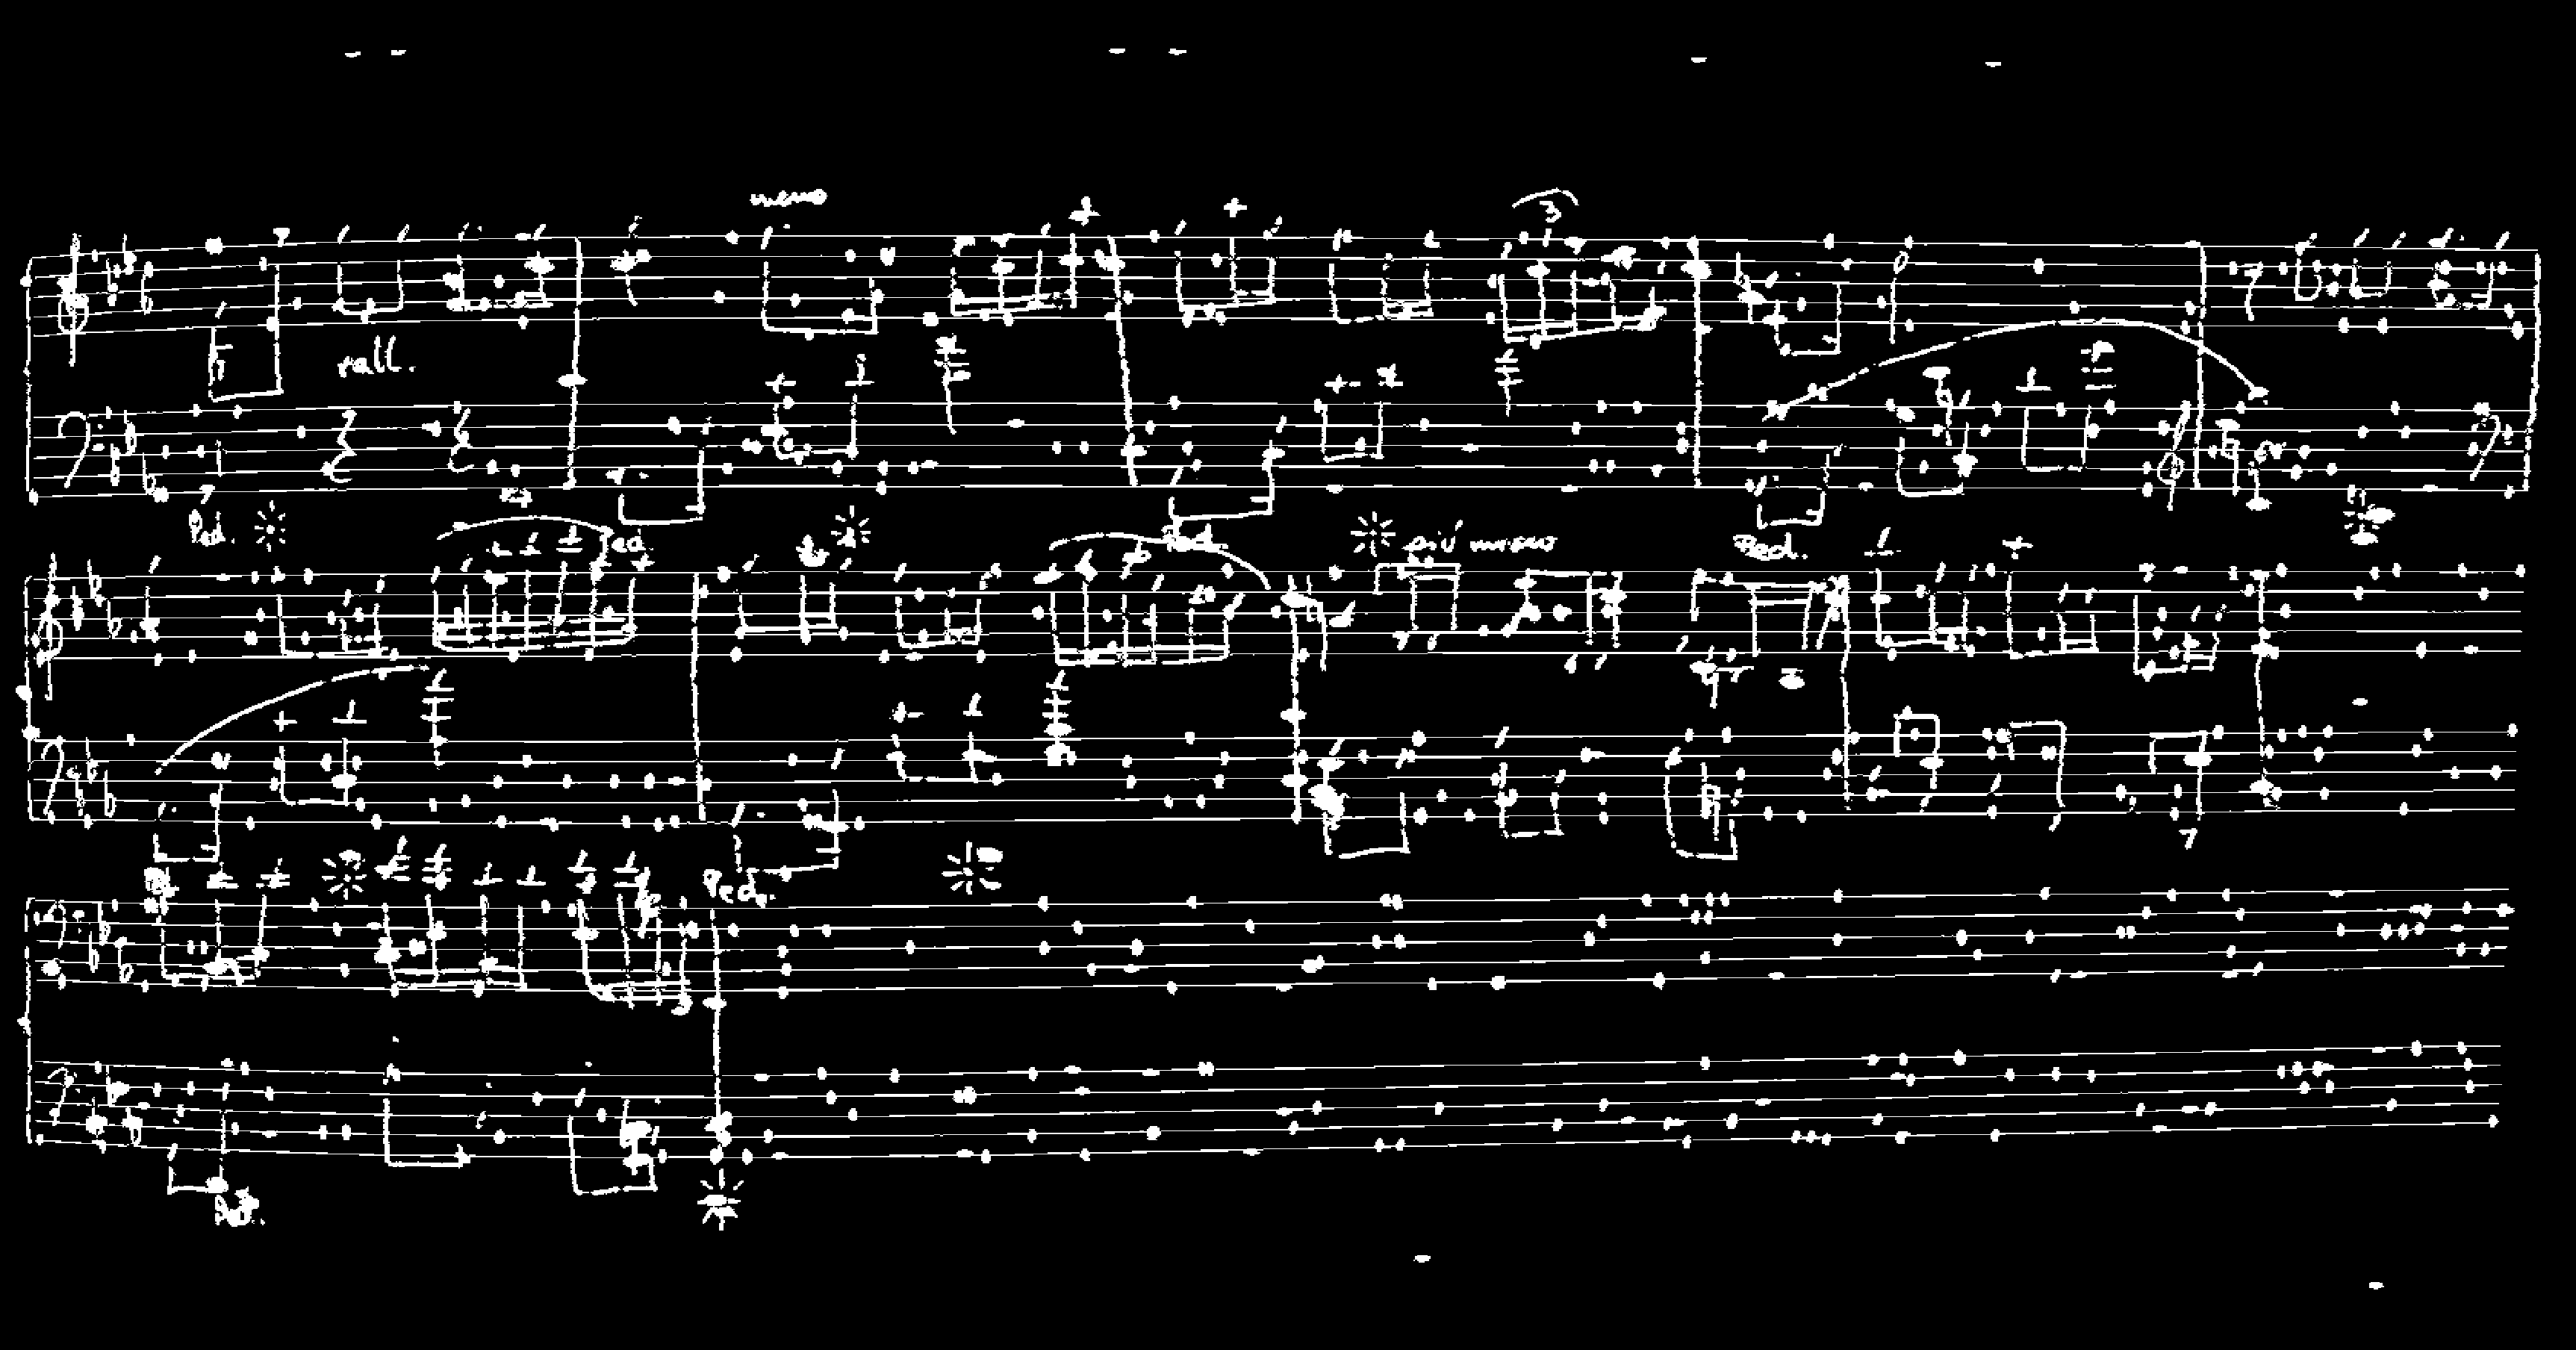 meno
3
rall.
Ped.
Ped. Ped. più mosso Ped.
Ped.
Ped.